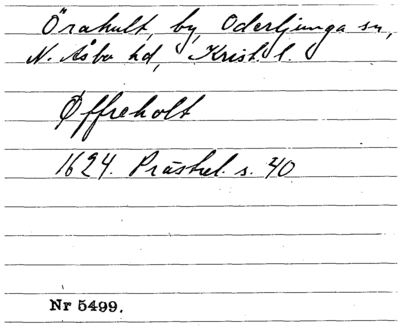 Örahult, by, Oderljunga sn,
N. Åsbo hd, Krist. l.
Øffreholt
1624. Prästrel. s. 40
Nr 5499.